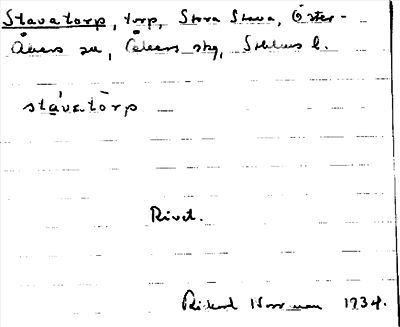 Stavatorp, torp, Stora Stava, Öster-
Åkers sn, Åkers skg, Sthlms l.
stávatòrp
Rivet.
Rickard Norrman 1934.